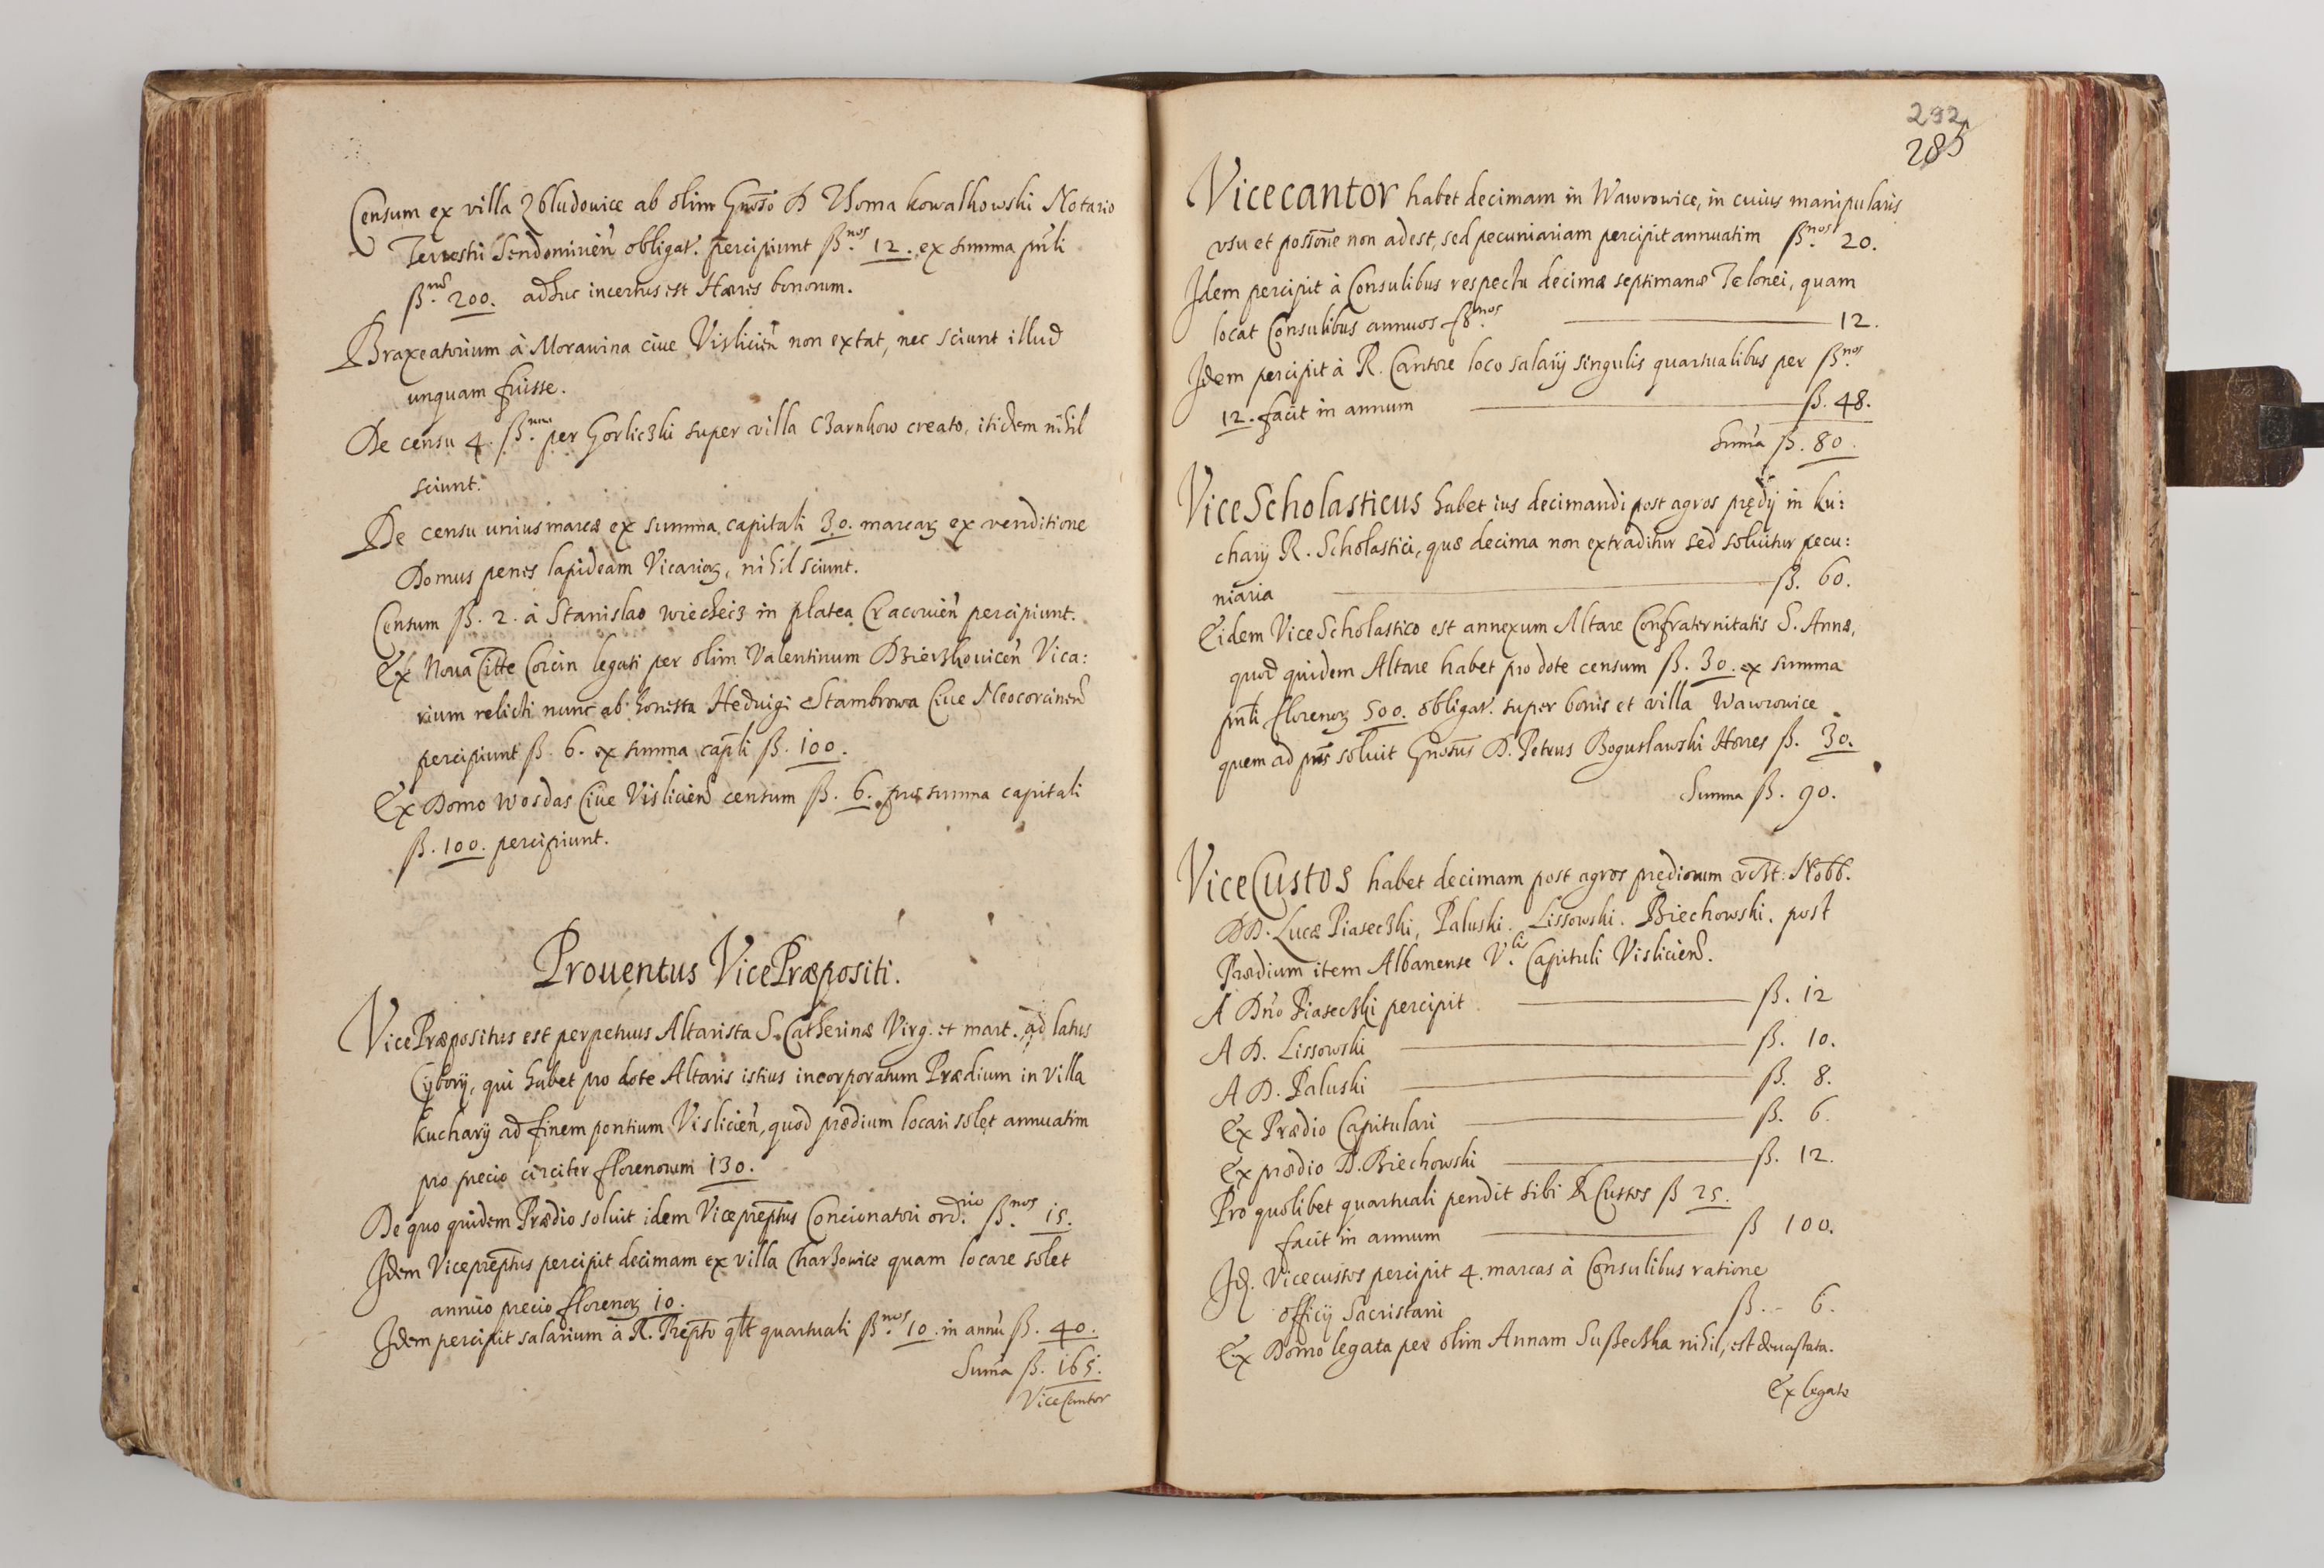 Censum ex villa Zbludouice ab olim Gnoso D Thoma kowalkowski Notario
Terrestri Sendomirień obligat. percipiunt ß.nos 12. ex summa pnli
ß.nos 200. adhuc incertus est Hæres bonorum.
Braxeatorium à Morawina ciue Vislicień non extat, nec sciunt illud
unquam fuisse.
De censu 4. ß. per Gorliczki super villa Charnkow creato, itidem nihil
sciunt.
De censu unius marcæ ex summa capitali 30. marcaꝝ ex venditione
Domus penes lapideam Vicarioꝝ, nihil sciunt.
Censum ß. 2. à Stanislao wiecheiz in platea Cracouień percipiunt.
Ex Noua Citte Corcin legati per olim Valentinum Dzierzkouiceń Vica:
rium relicti nunc ab honesta Heduigi Stambrowa Ciue Neocorcineń
percipiunt ß. 6. ex summa capli ß. 100.
Ex Domo Wosdas Ciue Vislicień censum ß. 6. pro summa capitali
ß. 100. percipiunt.
Prouentus VicePræpositi.
VicePræpositus est perpetuus Altarista S. Catherinæ Virg. et mart. ad latus
Cyborij, qui habet pro dote Altaris istius incorporatum Prædium in villa
Kucharÿ ad finem pontium Vislicień, quod prædium locari solet annuatim
pro precio circiter florenorum 130.
De quo quidem Prædio soluit idem Viceprept̄us Concionatori ord.rio ß.nos 15.
Idem Viceprept̄us percipit decimam ex villa Charzowice quam locare solet
annuo precio florenoꝝ 10.
Idem percipit salarium à R. Prept̄o qlt quartuali ß.nos 10. in annũ ß. 40.
Sum̃a ß. 165.
ViceCantor
292
285
Vicecantor habet decimam in Wawrowice, in cuius manipularis
vsu et possione non adest, sed pecuniariam percipit annuatim ß.nos 20.
Idem percipit à Consulibus respectu decimæ septimanæ Telonei, quam
locat Consulibus annuos ß.nos 12.
Idem percipit à R. Cantore loco salarÿ singulis quartualibus per ß.nos
12. facit in annum ß. 48.
Sum̃a ß. 80.
ViceScholasticus habet ius decimandi post agros prędÿ in ku:
charÿ R. Scholastici, quæ decima non extraditur sed soluitur pecu:
niaria ß. 60.
Eidem ViceScholastico est annexum Altare Confraternitatis S. Annæ,
quod quidem Altare habet pro dote censum ß. 30. ex summa
pnli florenoꝝ 500. obligat. super bonis et villa Wawrowice
quem ad pns soluit Gnosus D. Petrus Boguslawski Hæres ß. 30.
Summa ß. 90.
ViceCustos habet decimam post agros prędiorum Nobb.
DD. Lucæ Piaseczki, Paluski. Lissowski. Biechowski. post
Prædium item Albanense V.lis Capituli Vislicień.
A Dño Piaseczki percipit ß. 12
A D. Lissowski ß. 10.
A D. Paluski ß. 8.
Ex Prædio Capitulari ß. 6
Ex prædio D. Biechowski ß. 12.
Pro quolibet quartuali pendit sibi R Custos ß 25.
facit in annum ß 100.
Id. Vicecustos percipit 4. marcas à Consulibus ratione
officÿ Sacristani ß. 6.
Ex Domo legata per olim Annam Sußeczka nihil, est deuastata.
Ex legato